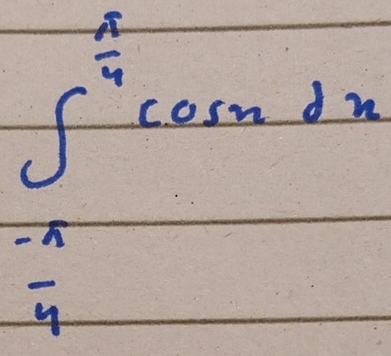 ∫_{-π/4}^{π/4} cosx dx